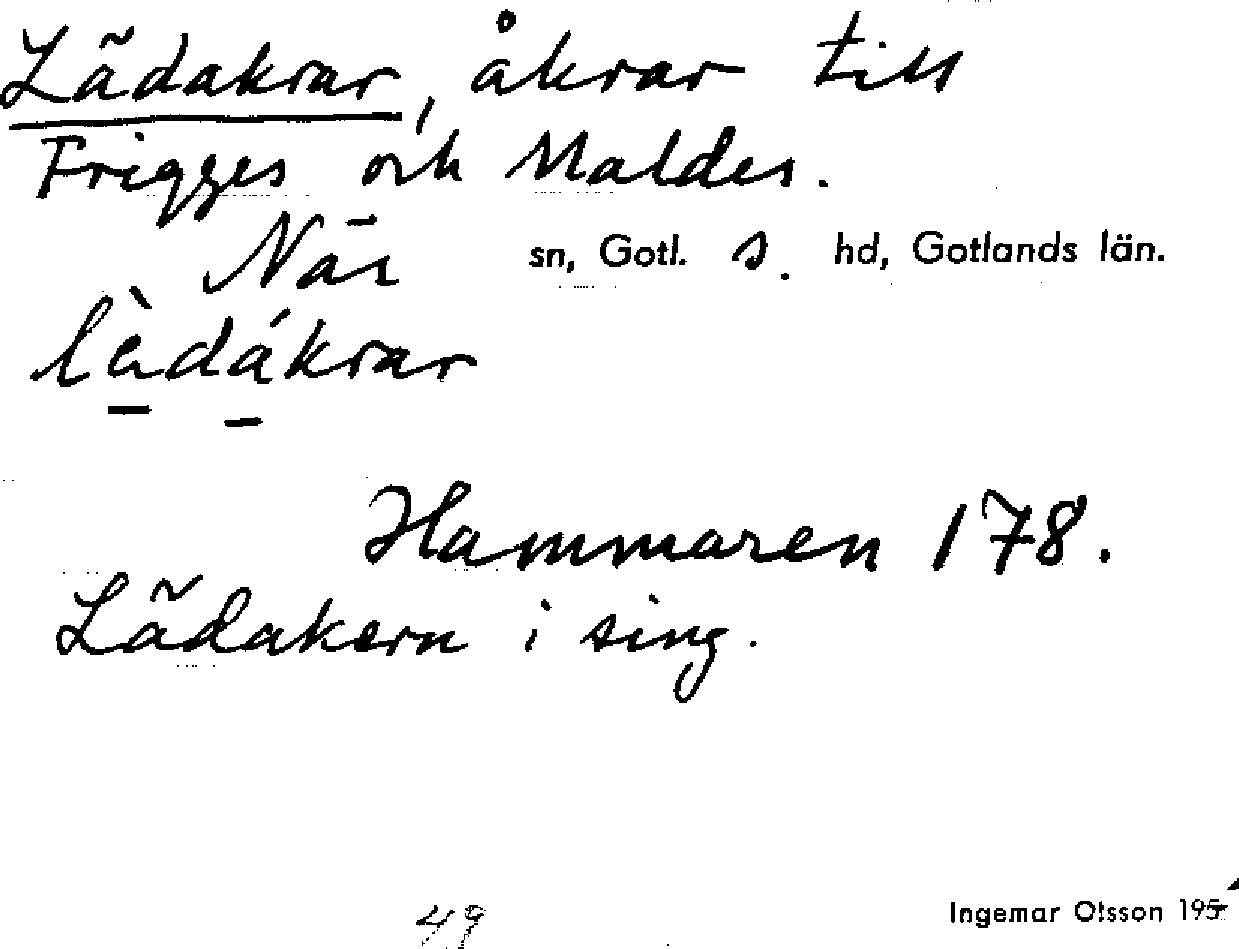 Lãdakrar, åkrar till
Frigges och Maldes.
När sn, Gotl. s. hd, Gotlands län.
Hammaren 178.
Lãdakern i sing.
49
Ingemar Olsson 195